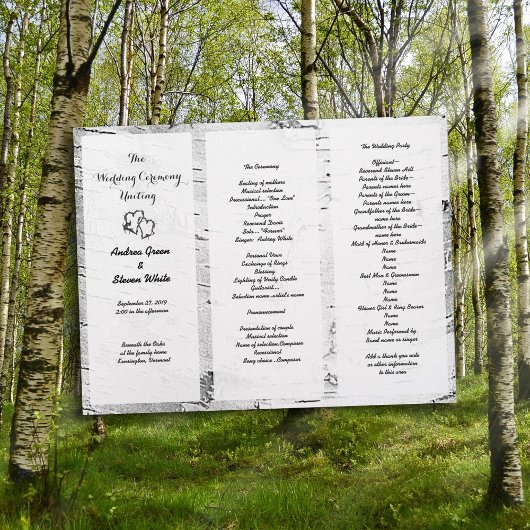 The
Wedding Ceremony
Uniting
Andrea Green
&
Steven White
September 27, 2019
2:00 in the afternoon
Beneath the Oaks
at the family home
Kensington, Vermont
The Ceremony
Seating of mothers
Musical selection
Processional... "One Love"
Introduction
Prayer
Reverend Davis
Solo... "Forever"
Singer: Aubrey White
Personal Vows
Exchange of Rings
Blessing
Lighting of Unity Candle
Guitarist...
Selection name..artist's name
Announcement
Presentation of couple
Musical selection
Name of selection..Composer
Recessional
Song choice ..Composer
The Wedding Party
Officient~
Reverend Steven Hill
Parents of the Bride~
Parents names here
Parents of the Groom~
Parents names here
Grandfather of the Bride~
name here
Grandmother of the Bride~
name here
Maid of Honor & Bridesmaids
Name
Name
Name
Best Man & Groomsmen
Name
Name
Name
Flower Girl & Ring Bearer
Name
Name
Music Performed by
Band name or singer
Add a thank you note
or other information
to this area